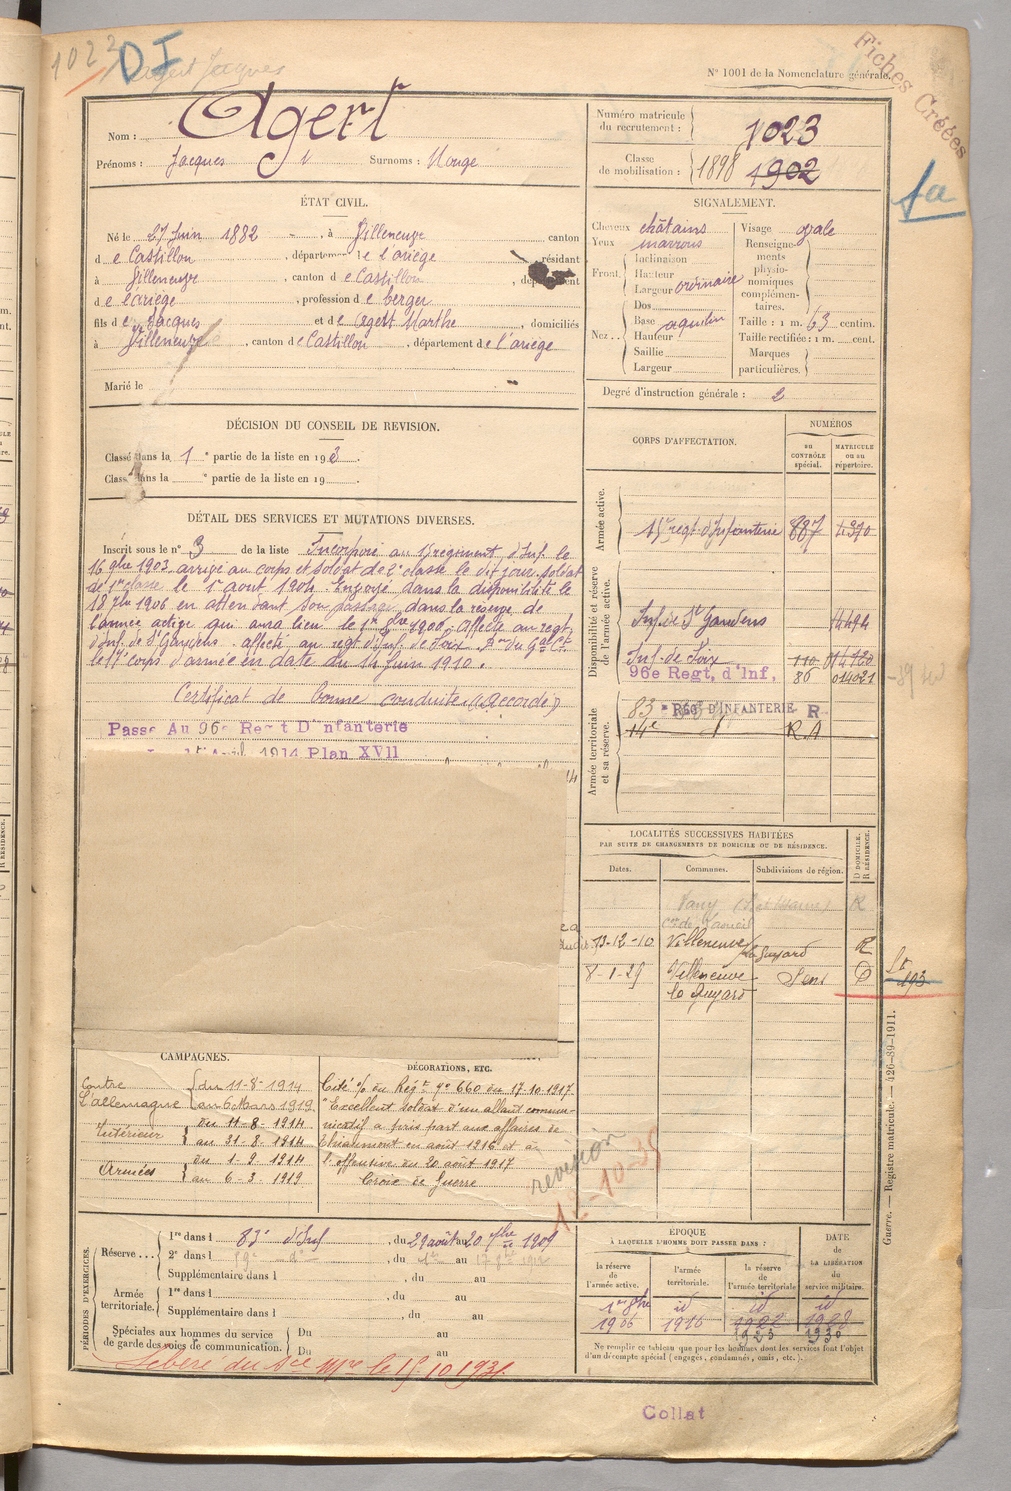 1022
DI
Agert Jacques
N° 1001 de la Nomenclature générale.
Fiches Créées
fa
Nom : Agert
Prénoms : Jacques Surnoms : Mougé
Numéro matricule du recrutement : 1023
Classe de mobilisation : 1898 1902
ÉTAT CIVIL.
Né le 27 Juin 1882, à Villeneuve canton
d e Castillon, département de l'ariège résidant
à Villeneuve, canton d e Castillon, département
d e l'ariège, profession d e berger
fils d e Jacques et d e Agert Marthe, domiciliés
à Villeneuve, canton d e Castillon, département d e l'ariège
Marié le
SIGNALEMENT.
Cheveux châtains
Yeux marrons
Front. Inclinaison
Hauteur
Largeur ordinaire
Nez.. Dos
Base aquilin
Hauteur
Saillie
Largeur
Visage ovale
Renseignements physionomiques complémentaires.
Taille : 1 m. 63 centim.
Taille rectifiée : 1 m. cent.
Marques particulières.
Degré d'instruction générale : 2
DÉCISION DU CONSEIL DE REVISION.
Classé dans la 1e partie de la liste en 1903.
Classé dans la e partie de la liste en 19 .
DÉTAIL DES SERVICES ET MUTATIONS DIVERSES.
Inscrit sous le n° 3 de la liste Incorporé au régiment d'Inf. le
16 9bre 1903 arrivé au corps et soldat de 2e classe le dit jour. soldat
de 1re classe le 1er aout 1904. Envoyé dans la disponibilité le
18 7bre 1906 en attendant son passage dans la réserve de
l'armée active qui aura lieu le 1er 8bre 1906. Affecté au regt
d'Inf. de St Gaudens. affecté au regt d'Inf. de Foix. Don du Gal Ct
le 17e corps d'armée en date du 14 Juin 1910.
Certificat de bonne conduite (Accordé)
Passé Au 96e Regt D'Infanterie
1914 Plan XVII
CORPS D'AFFECTATION.
NUMÉROS
au CONTRÔLE spécial.
MATRICULE ou au répertoire.
Armée active.
regt d'Infanterie 887 4390
Disponibilité et réserve de l'armée active.
Inf. de St Gaudens 4494
Inf. de Foix 110 014720
96e Regt, d'Inf, 86 014021
Armée territoriale et sa réserve.
83e REGt D'INFANTERIE R
14e R A
LOCALITÉS SUCCESSIVES HABITÉES
PAR SUITE DE CHANGEMENTS DE DOMICILE OU DE RÉSIDENCE.
Dates. Communes. Subdivisions de région. D DOMICILE. R RÉSIDENCE.
R
13-12-10 Villeneuve la Guyard R
8-1-29 Villeneuve la Guyard Sens D
193
CAMPAGNES.
Contre L'allemagne du 11-8-1914
au 6 Mars 1919
Intérieur du 11-8-1914
au 31-8-1914
Armées du 1-9-1914
au 6-3-1919
DÉCORATIONS, ETC.
Cité % du Régt n° 660 du 17-10-1917.
"Excellent soldat d'un allant commu-
nicatif a pris part aux affaires de
Thiaumont en août 1916 et à
l'offensive du 20 août 1917
Croix de Guerre
revision
12-10-35
PÉRIODES D'EXERCICES.
Réserve... 1re dans l 83e d'Inf, du 29 août au 20 7bre 1909
2e dans l 89e de, du au 17
Supplémentaire dans l, du au
Armée territoriale. 1re dans l, du au
Supplémentaire dans l, du au
Spéciales aux hommes du service de garde des voies de communication. Du au
Du au
Libéré du Sce Mre le 15.10.193
ÉPOQUE
À LAQUELLE L'HOMME DOIT PASSER DANS :
la réserve de l'armée active.
l'armée territoriale.
la réserve de l'armée territoriale
DATE de LA LIBÉRATION du service militaire.
1er 8bre 1906
id 1916
id 1922 1923
id 1928 1930
Ne remplir ce tableau que pour les hommes dont les services font l'objet
d'un décompte spécial (engagés, condamnés, omis, etc.).
Guerre. — Registre matricule. — 426-89-1911.
Collat